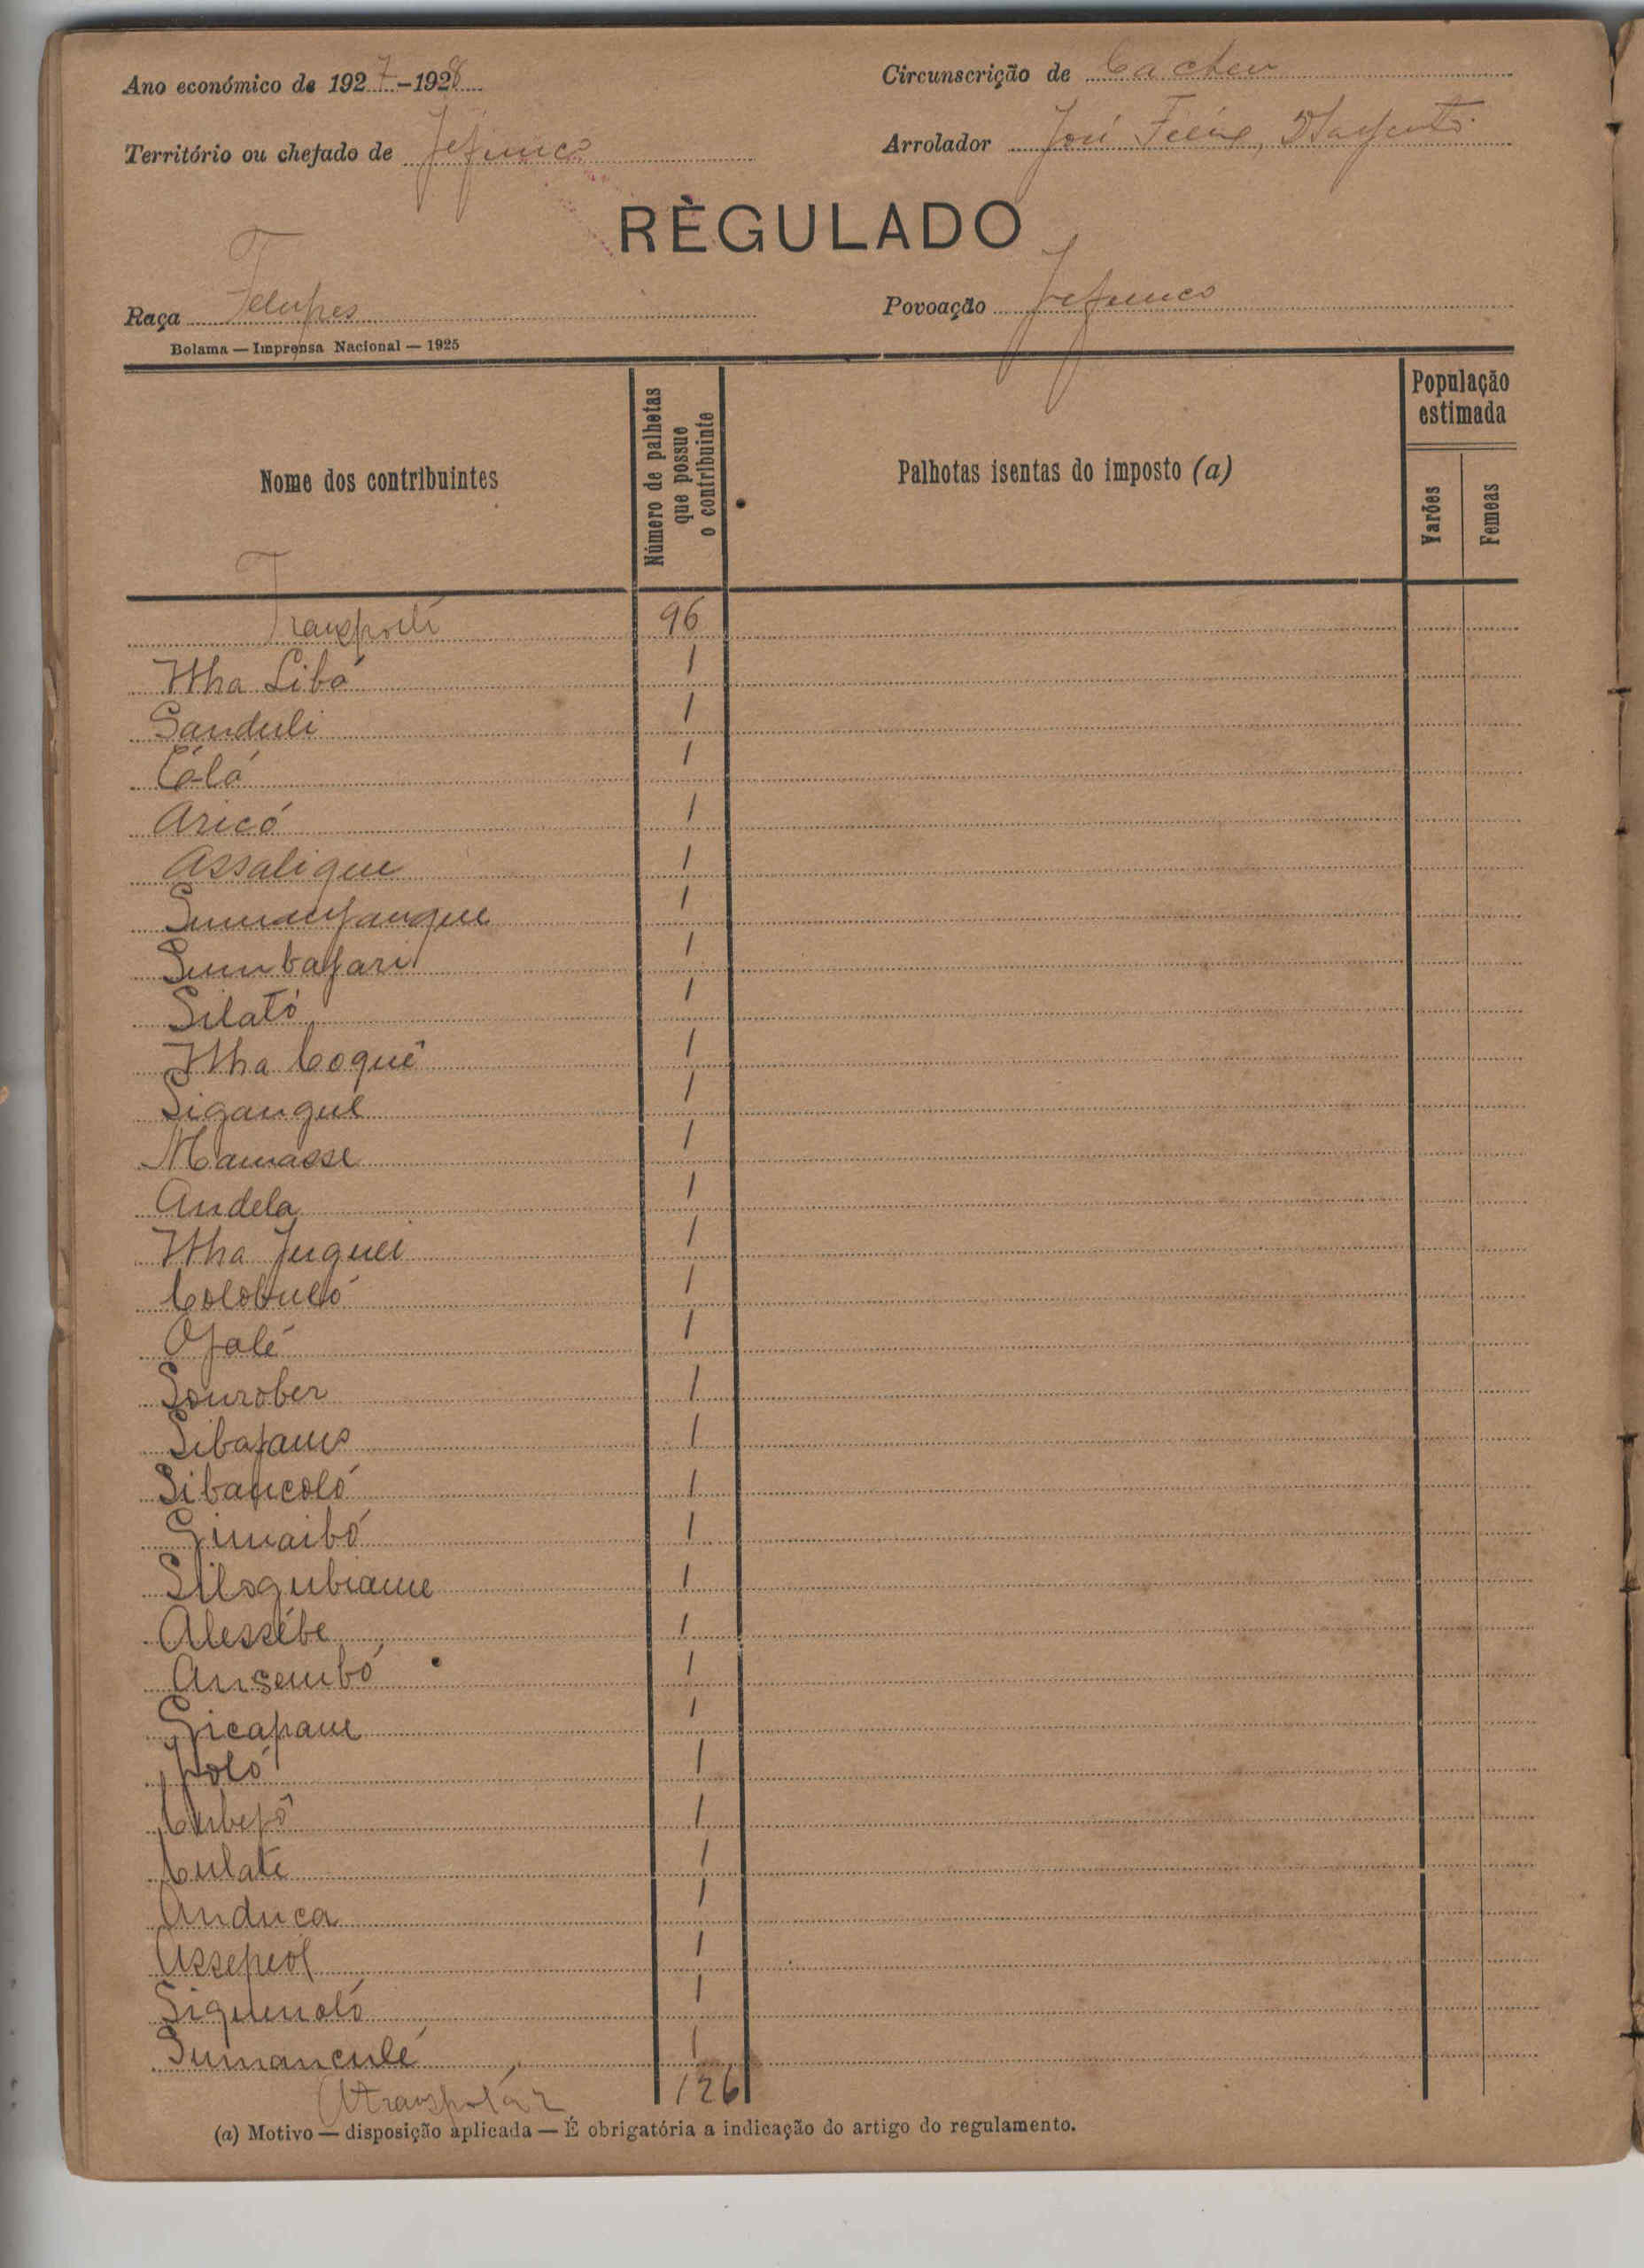 Ano económico de 1927-1928
Circunscrição de Cacheu
Território ou chefado de Jefunco
Arrolador José Felix, Sargento
RÈGULADO
Raça Felupes
Povoação Jefunco
Bolama — Imprensa Nacional — 1925
Nome dos contribuintes
Número de palhotas que possue o contribuinte
Palhotas isentas do imposto (a)
População estimada
Varões
Femeas
Transporte 96
Libó 1
Sanduli 1
Cóló 1
Aricó 1
Assalique 1
1
Sumbajari 1
Silató 1
Coquê 1
Sigangul 1
Mamasse 1
Andela 1
Juguei 1
Colobuló 1
Ojalé 1
Sourober 1
1
Sibancoló 1
Simaibó 1
1
Alessébe 1
Ansembó 1
Sicapaue 1
Joló 1
Cubepô 1
Culate 1
Anduca 1
Assepiol 1
Siquenoló 1
Sumanculé 1
A transportár 126
(a) Motivo — disposição aplicada — É obrigatória a indicação do artigo do regulamento.